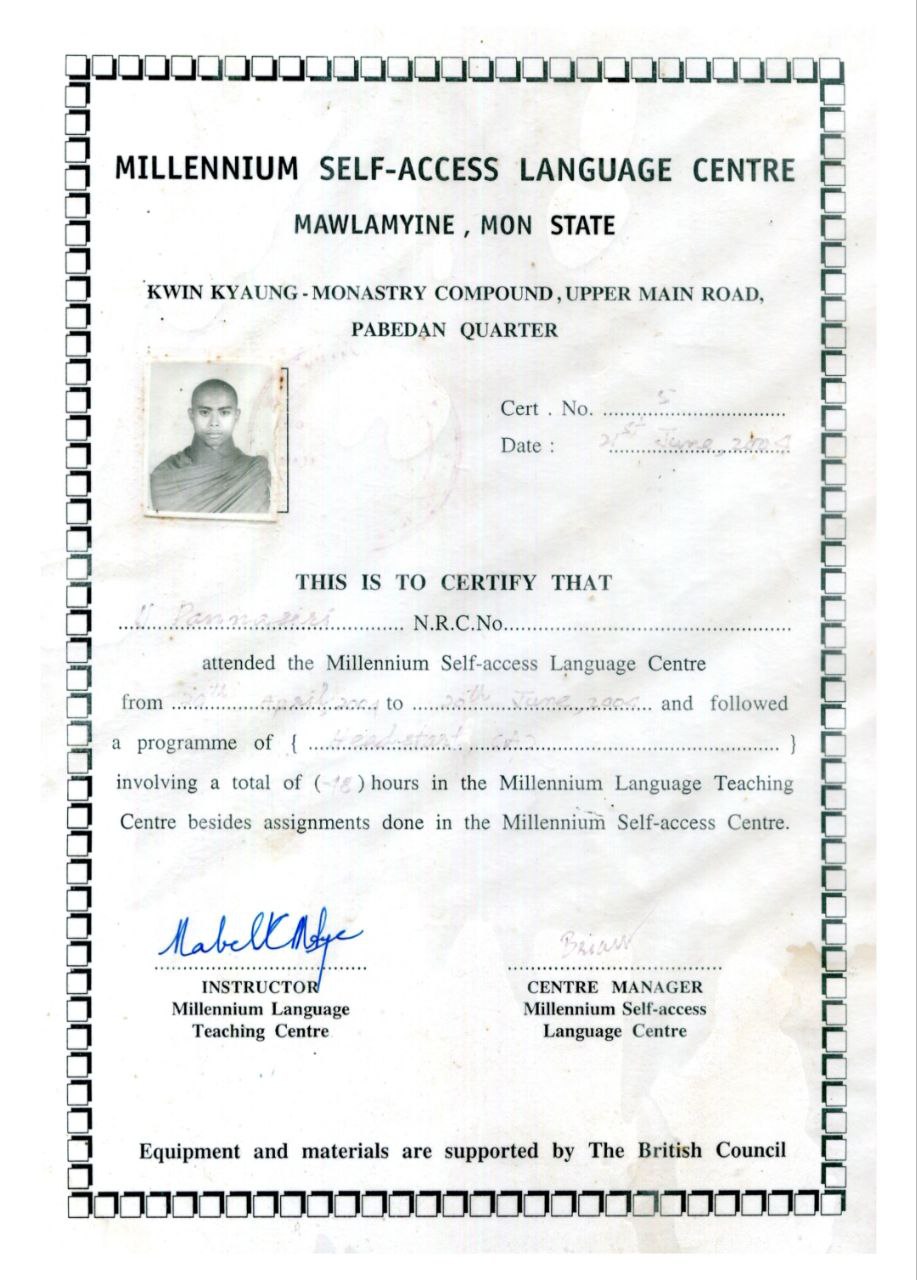 MILLENNIUM SELF-ACCESS LANGUAGE CENTRE
MAWLAMYINE , MON STATE
KWIN KYAUNG - MONASTRY COMPOUND , UPPER MAIN ROAD,
PABEDAN QUARTER
Cert . No. 5
Date : 21st June, 2004
THIS IS TO CERTIFY THAT
U Pannasiri N.R.C.No.
attended the Millennium Self-access Language Centre
from April, to 20th June, and followed
a programme of { Headstart }
involving a total of ( ) hours in the Millennium Language Teaching
Centre besides assignments done in the Millennium Self-access Centre.
INSTRUCTOR
Millennium Language
Teaching Centre
Brian
CENTRE MANAGER
Millennium Self-access
Language Centre
Equipment and materials are supported by The British Council